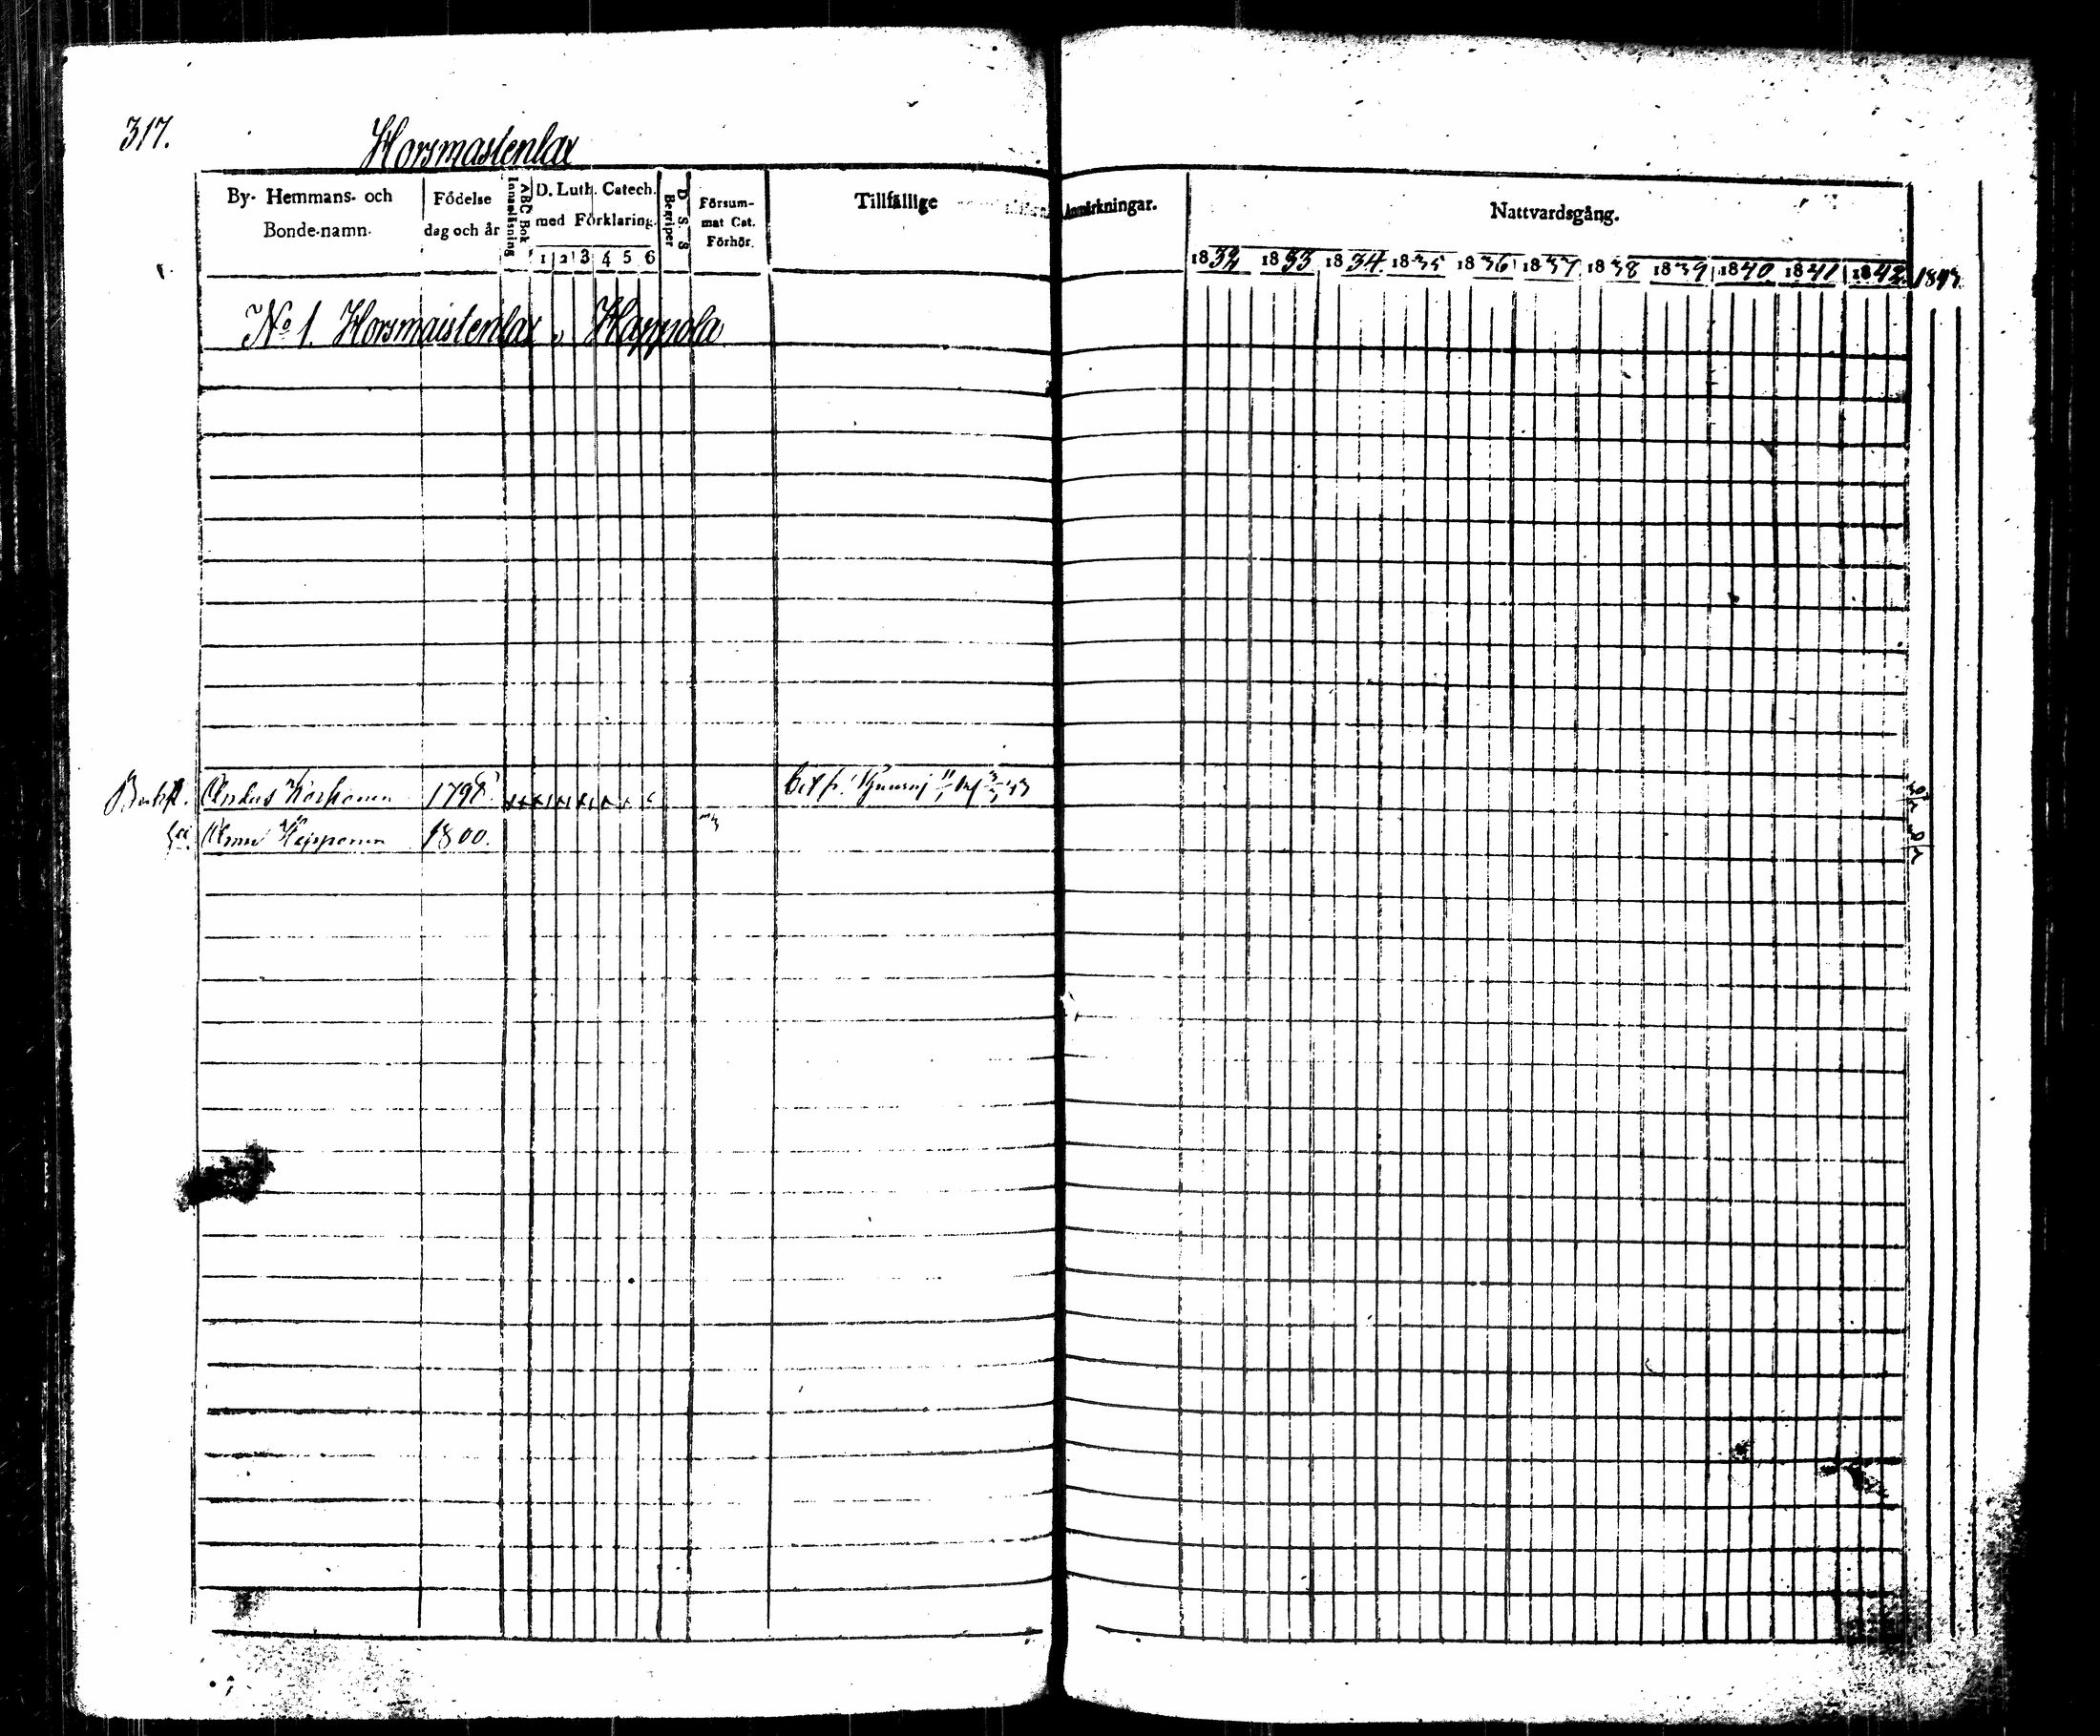 317.
Horsmastenlax
By- Hemmans- och Bonde-namn.
Födelse dag och år
Innanläsning
ABC Bok
D. Luth. Catech. med Förklaring.
1 2 3 4 5 6
D. S. S
Begriper
Försum-mat Cat. Förhör.
Tillfällige
Anmärkningar.
Nattvardsgång.
1832 1833 1834 1835 1836 1837 1838 1839 1840 1841 1842 1843
No 1. Horsmaistenlax Happola
Anders Korhonen 1798
Anna Heipponen 1800.